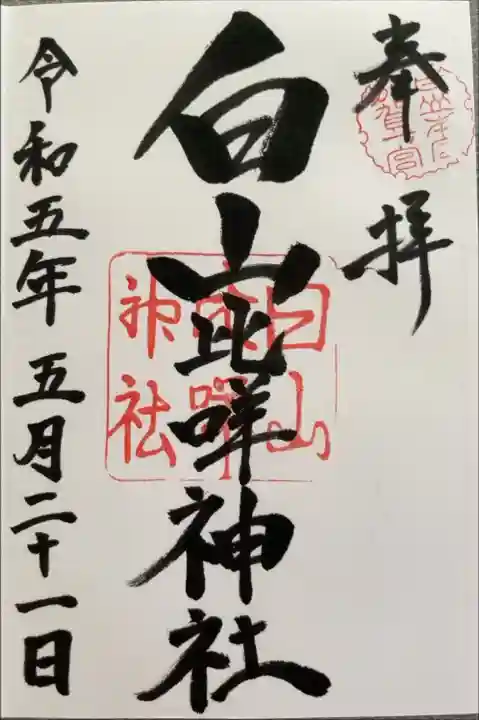 奉拝
白山比咩神社
白山比咩神社
令和五年 五月二十一日